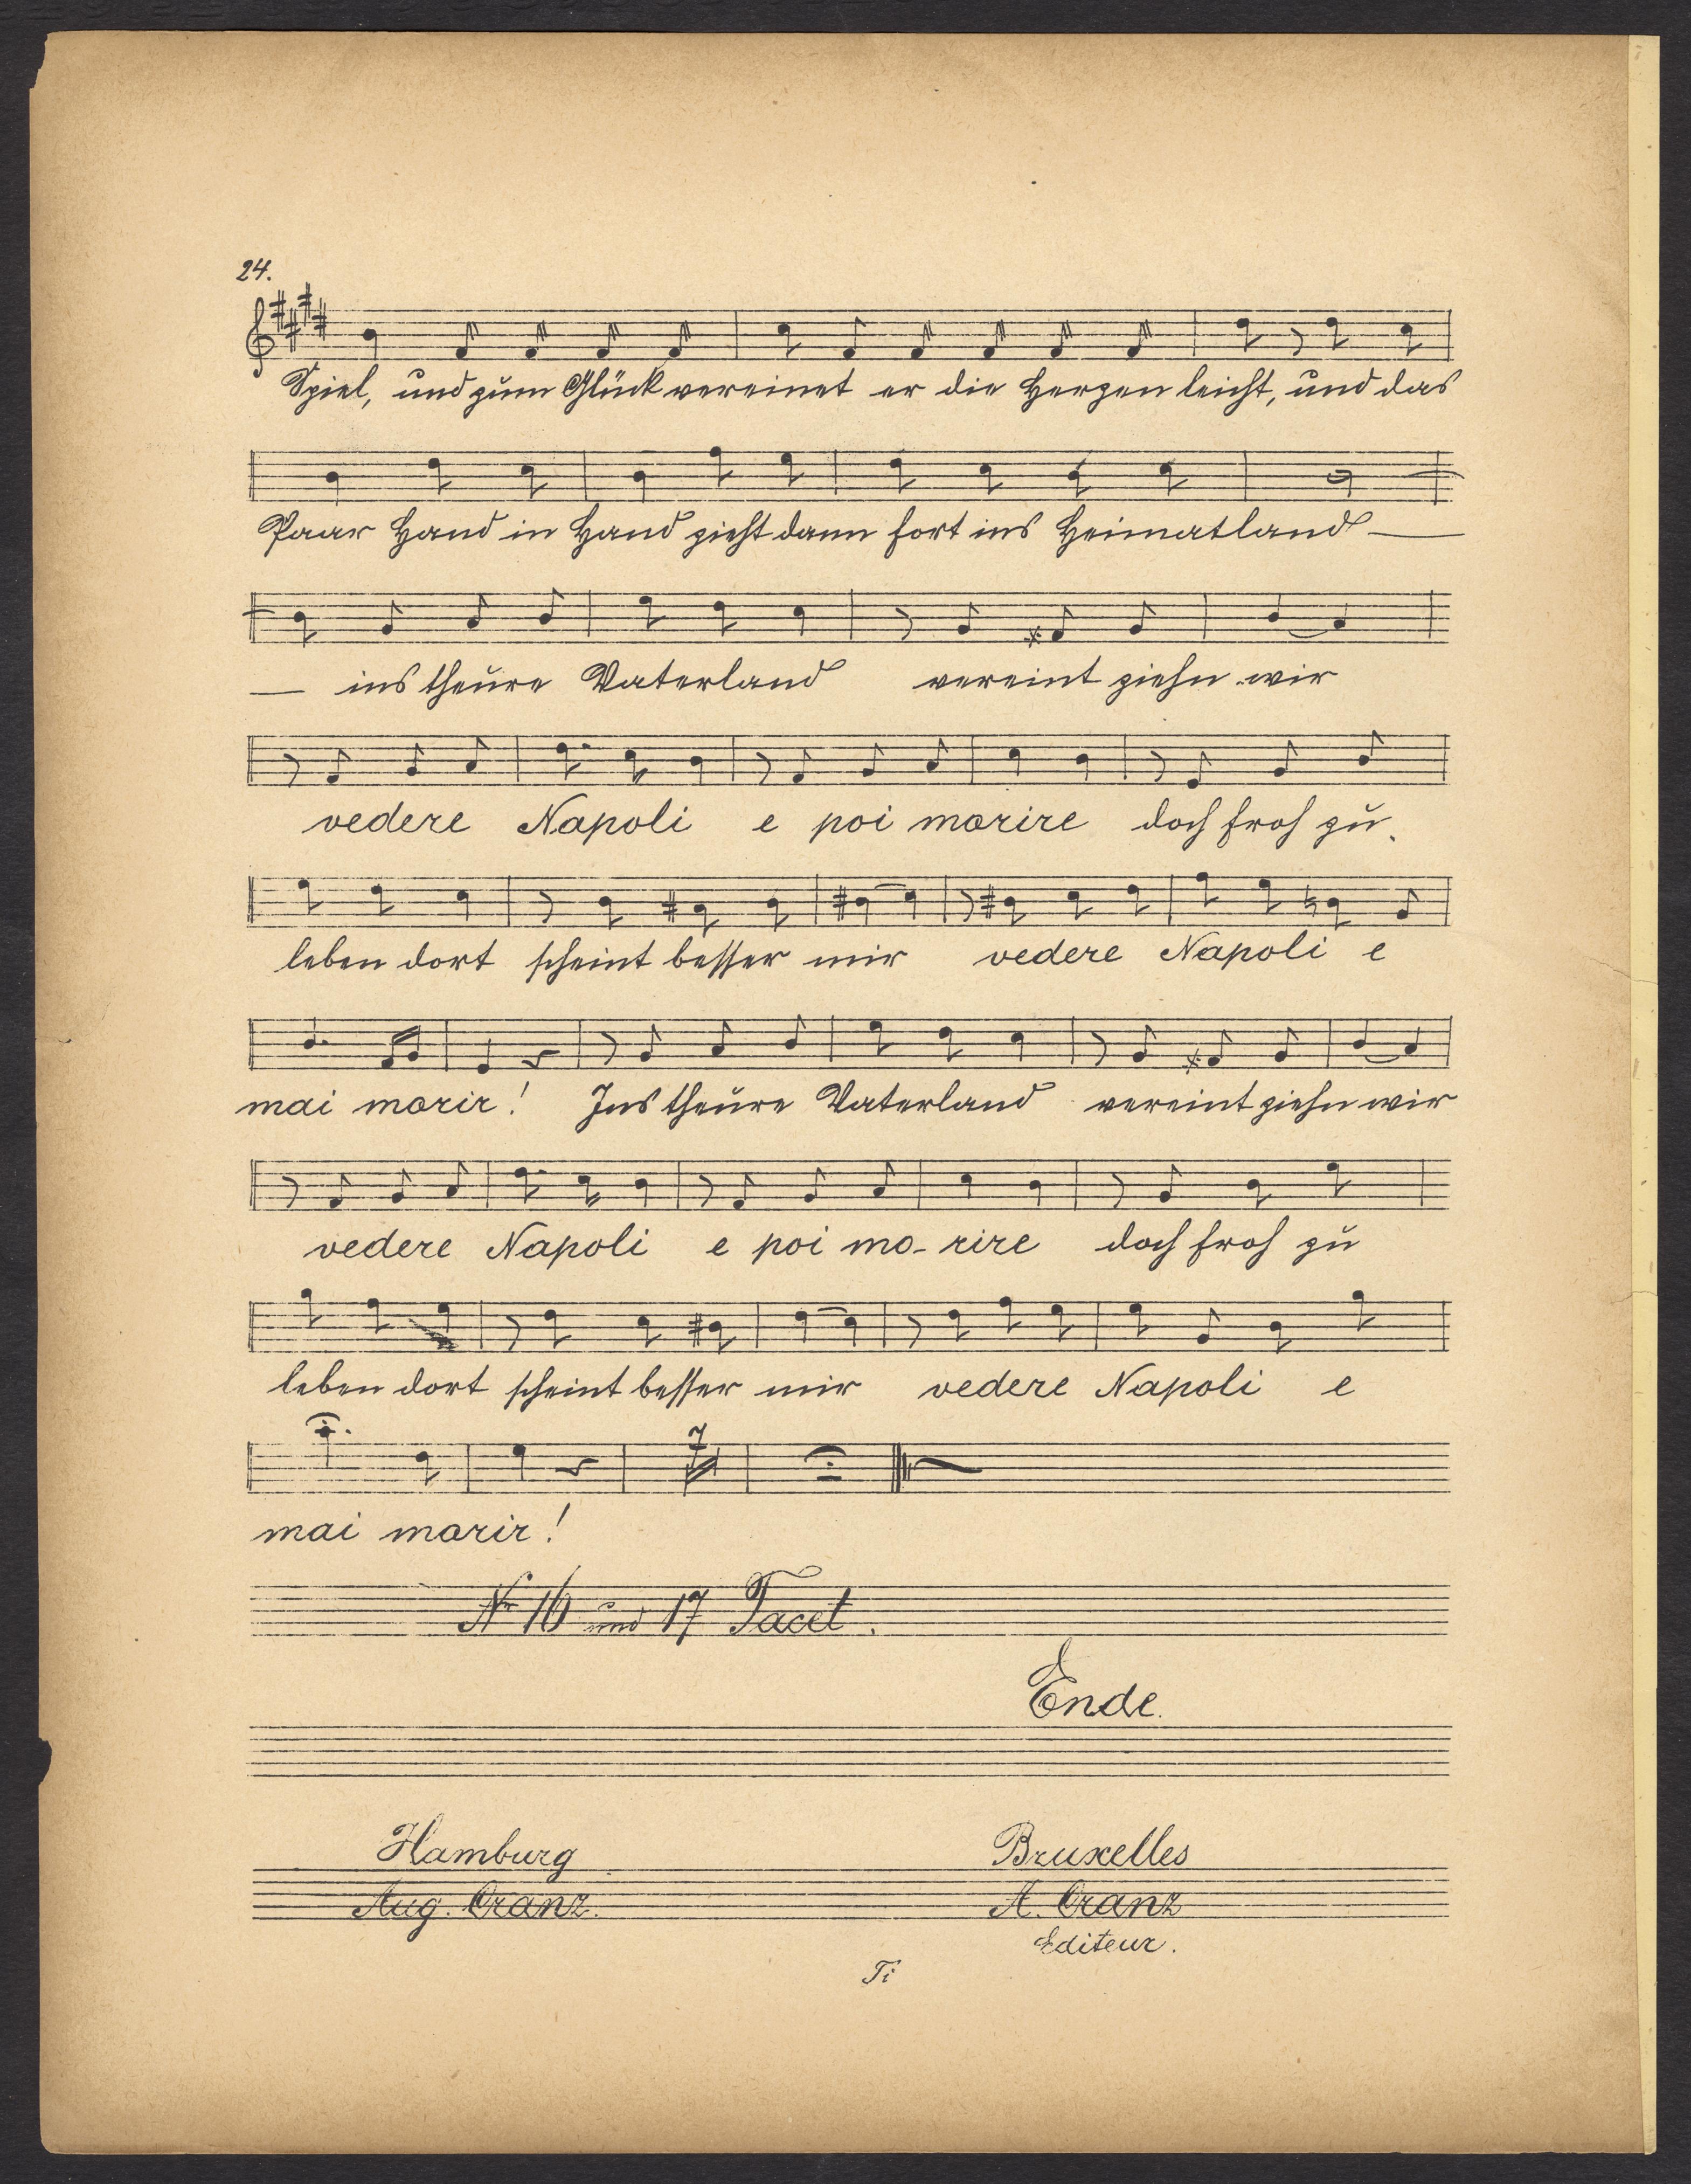 24.
Spiel, und zum Glück vereinet er die Herzen leicht, und das
Paar Hand in Hand zieht dann fort ins Heimatland —
— ins theure Vaterland vereint ziehn wir
vedere Napoli e poi morire doch froh zu
leben dort scheint besser mir vedere Napoli e
mai morir! Ins theure Vaterland vereint ziehn wir
vedere Napoli e poi mo-rire doch froh zu
leben dort scheint besser mir vedere Napoli e
7
mai morir!
Nr 16 und 17 Tacet.
Ende.
Hamburg Bruxelles
Aug. Cranz. A. Cranz
Editeur.
Ti